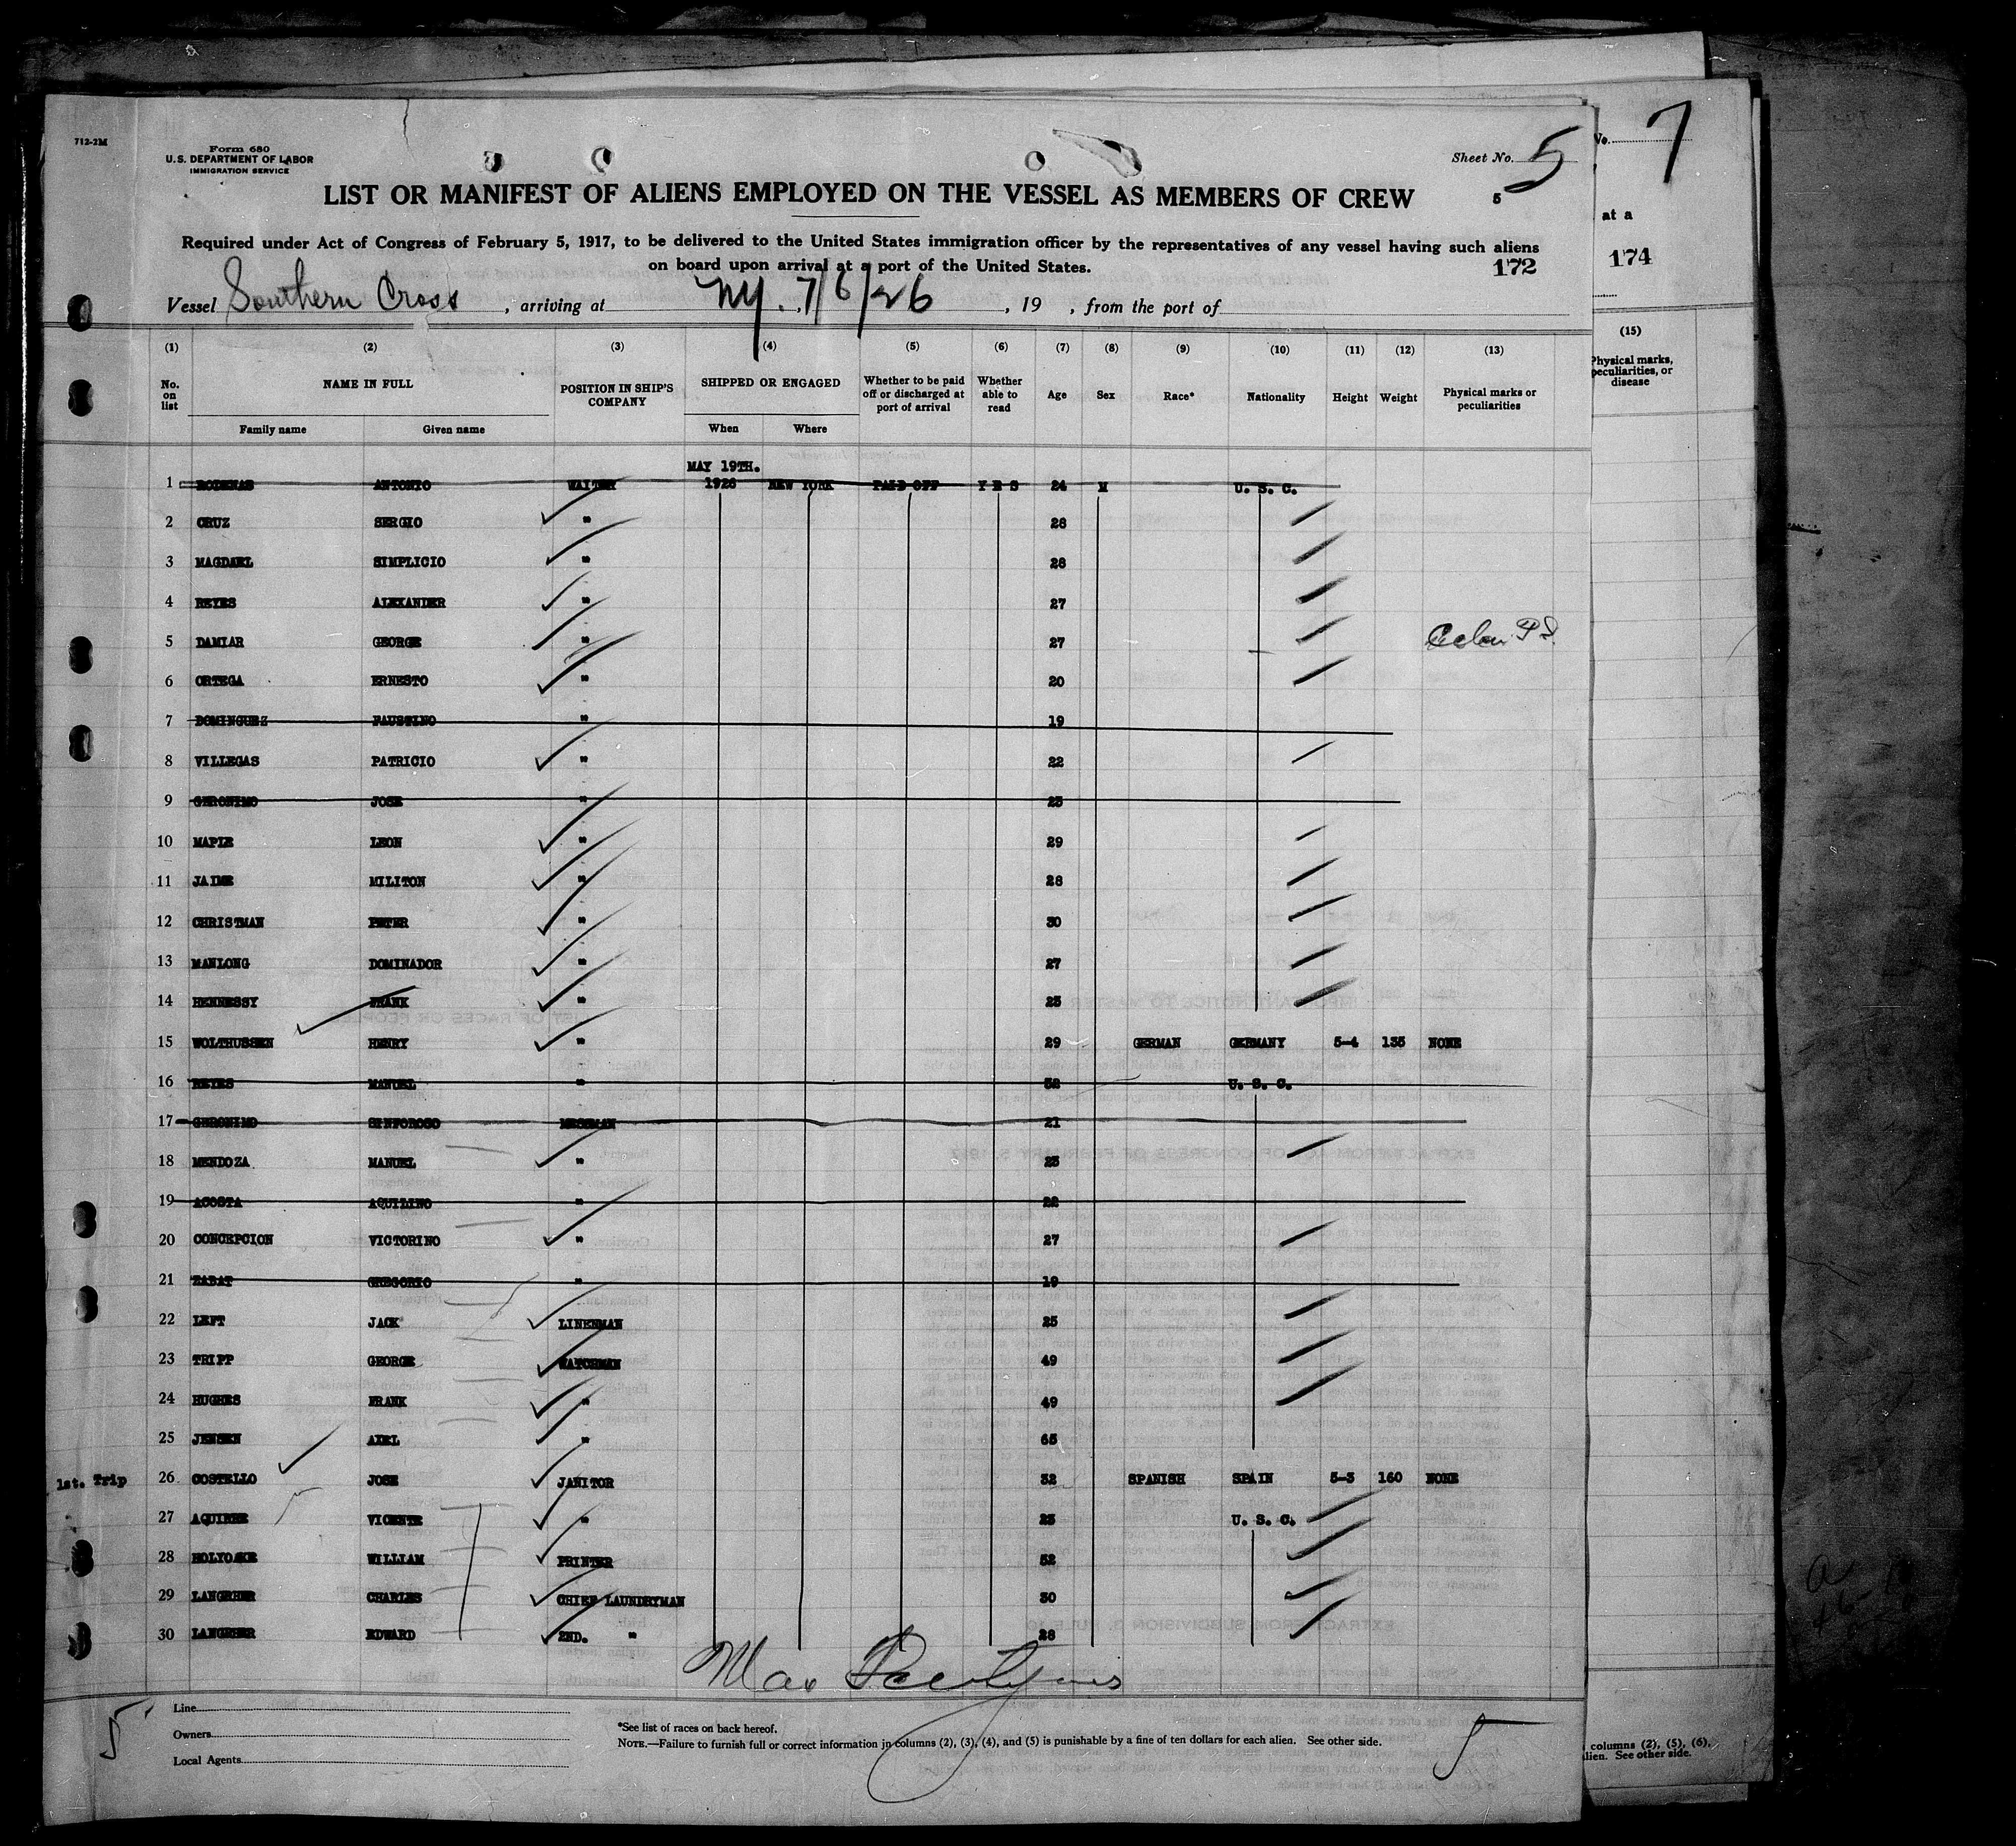 712-2M
Form 680
U.S. DEPARTMENT OF LABOR
IMMIGRATION SERVICE
Sheet No. 5
No. 7
LIST OR MANIFEST OF ALIENS EMPLOYED ON THE VESSEL AS MEMBERS OF CREW
5
at a
Required under Act of Congress of February 5, 1917, to be delivered to the United States immigration officer by the representatives of any vessel having such aliens
on board upon arrival at a port of the United States.
172
174
Vessel Southern Cross, arriving at N.Y. 7/6/26, 19 , from the port of
(1) (2) (3) (4) (5) (6) (7) (8) (9) (10) (11) (12) (13) (15)
No. on list NAME IN FULL POSITION IN SHIP'S COMPANY SHIPPED OR ENGAGED Whether to be paid off or discharged at port of arrival Whether able to read Age Sex Race* Nationality Height Weight Physical marks or peculiarities
Physical marks, peculiarities, or disease
Family name Given name When Where
MAY 19TH.
1 RODENAS ANTONIO WAITER 1926 NEW YORK PAID OFF YES 24 M U. S. C.
2 CRUZ SERGIO " 28
3 MAGDAEL SIMPLICIO " 28
4 REYES ALEXANDER " 27
5 DAMIAR GEORGE " 27
6 ORTEGA ERNESTO " 20
7 DOMINGUEZ FAUSTINO " 19
8 VILLEGAS PATRICIO " 22
9 GERONIMO JOSE " 25
10 MAPIE LEON " 29
11 JAIME MILITON " 28
12 CHRISTMAN PETER " 30
13 MANLONG DOMINADOR " 27
14 HENNESSY FRANK " 25
15 WOLTHUSSEN HENRY " 29 GERMAN GERMANY 5-4 135 NONE
16 REYES MANUEL " 32 U. S. C.
17 GERONIMO SINFOROSO MESSMAN 21
18 MENDOZA MANUEL " 25
19 ACOSTA AQUILINO " 22
20 CONCEPCION VICTORINO " 27
21 ZABAT GREGORIO " 19
22 LEFT JACK LINENMAN 25
23 TRIPP GEORGE WATCHMAN 49
24 HUGHES FRANK " 49
25 JENSEN AXEL " 65
1st. Trip 26 COSTELLO JOSE JANITOR 32 SPANISH SPAIN 5-3 160 NONE
27 AQUIRRE VICENTE " 23 U. S. C.
28 HOLYOAKE WILLIAM PRINTER 52
29 LANGEHER CHARLES CHIEF LAUNDRYMAN 30
30 LANGEHER EDWARD 2ND. " 28
Line
Owners
Local Agents
5
*See list of races on back hereof.
NOTE.—Failure to furnish full or correct information in columns (2), (3), (4), and (5) is punishable by a fine of ten dollars for each alien. See other side.
5
columns (2), (5), (6),
alien. See other side.